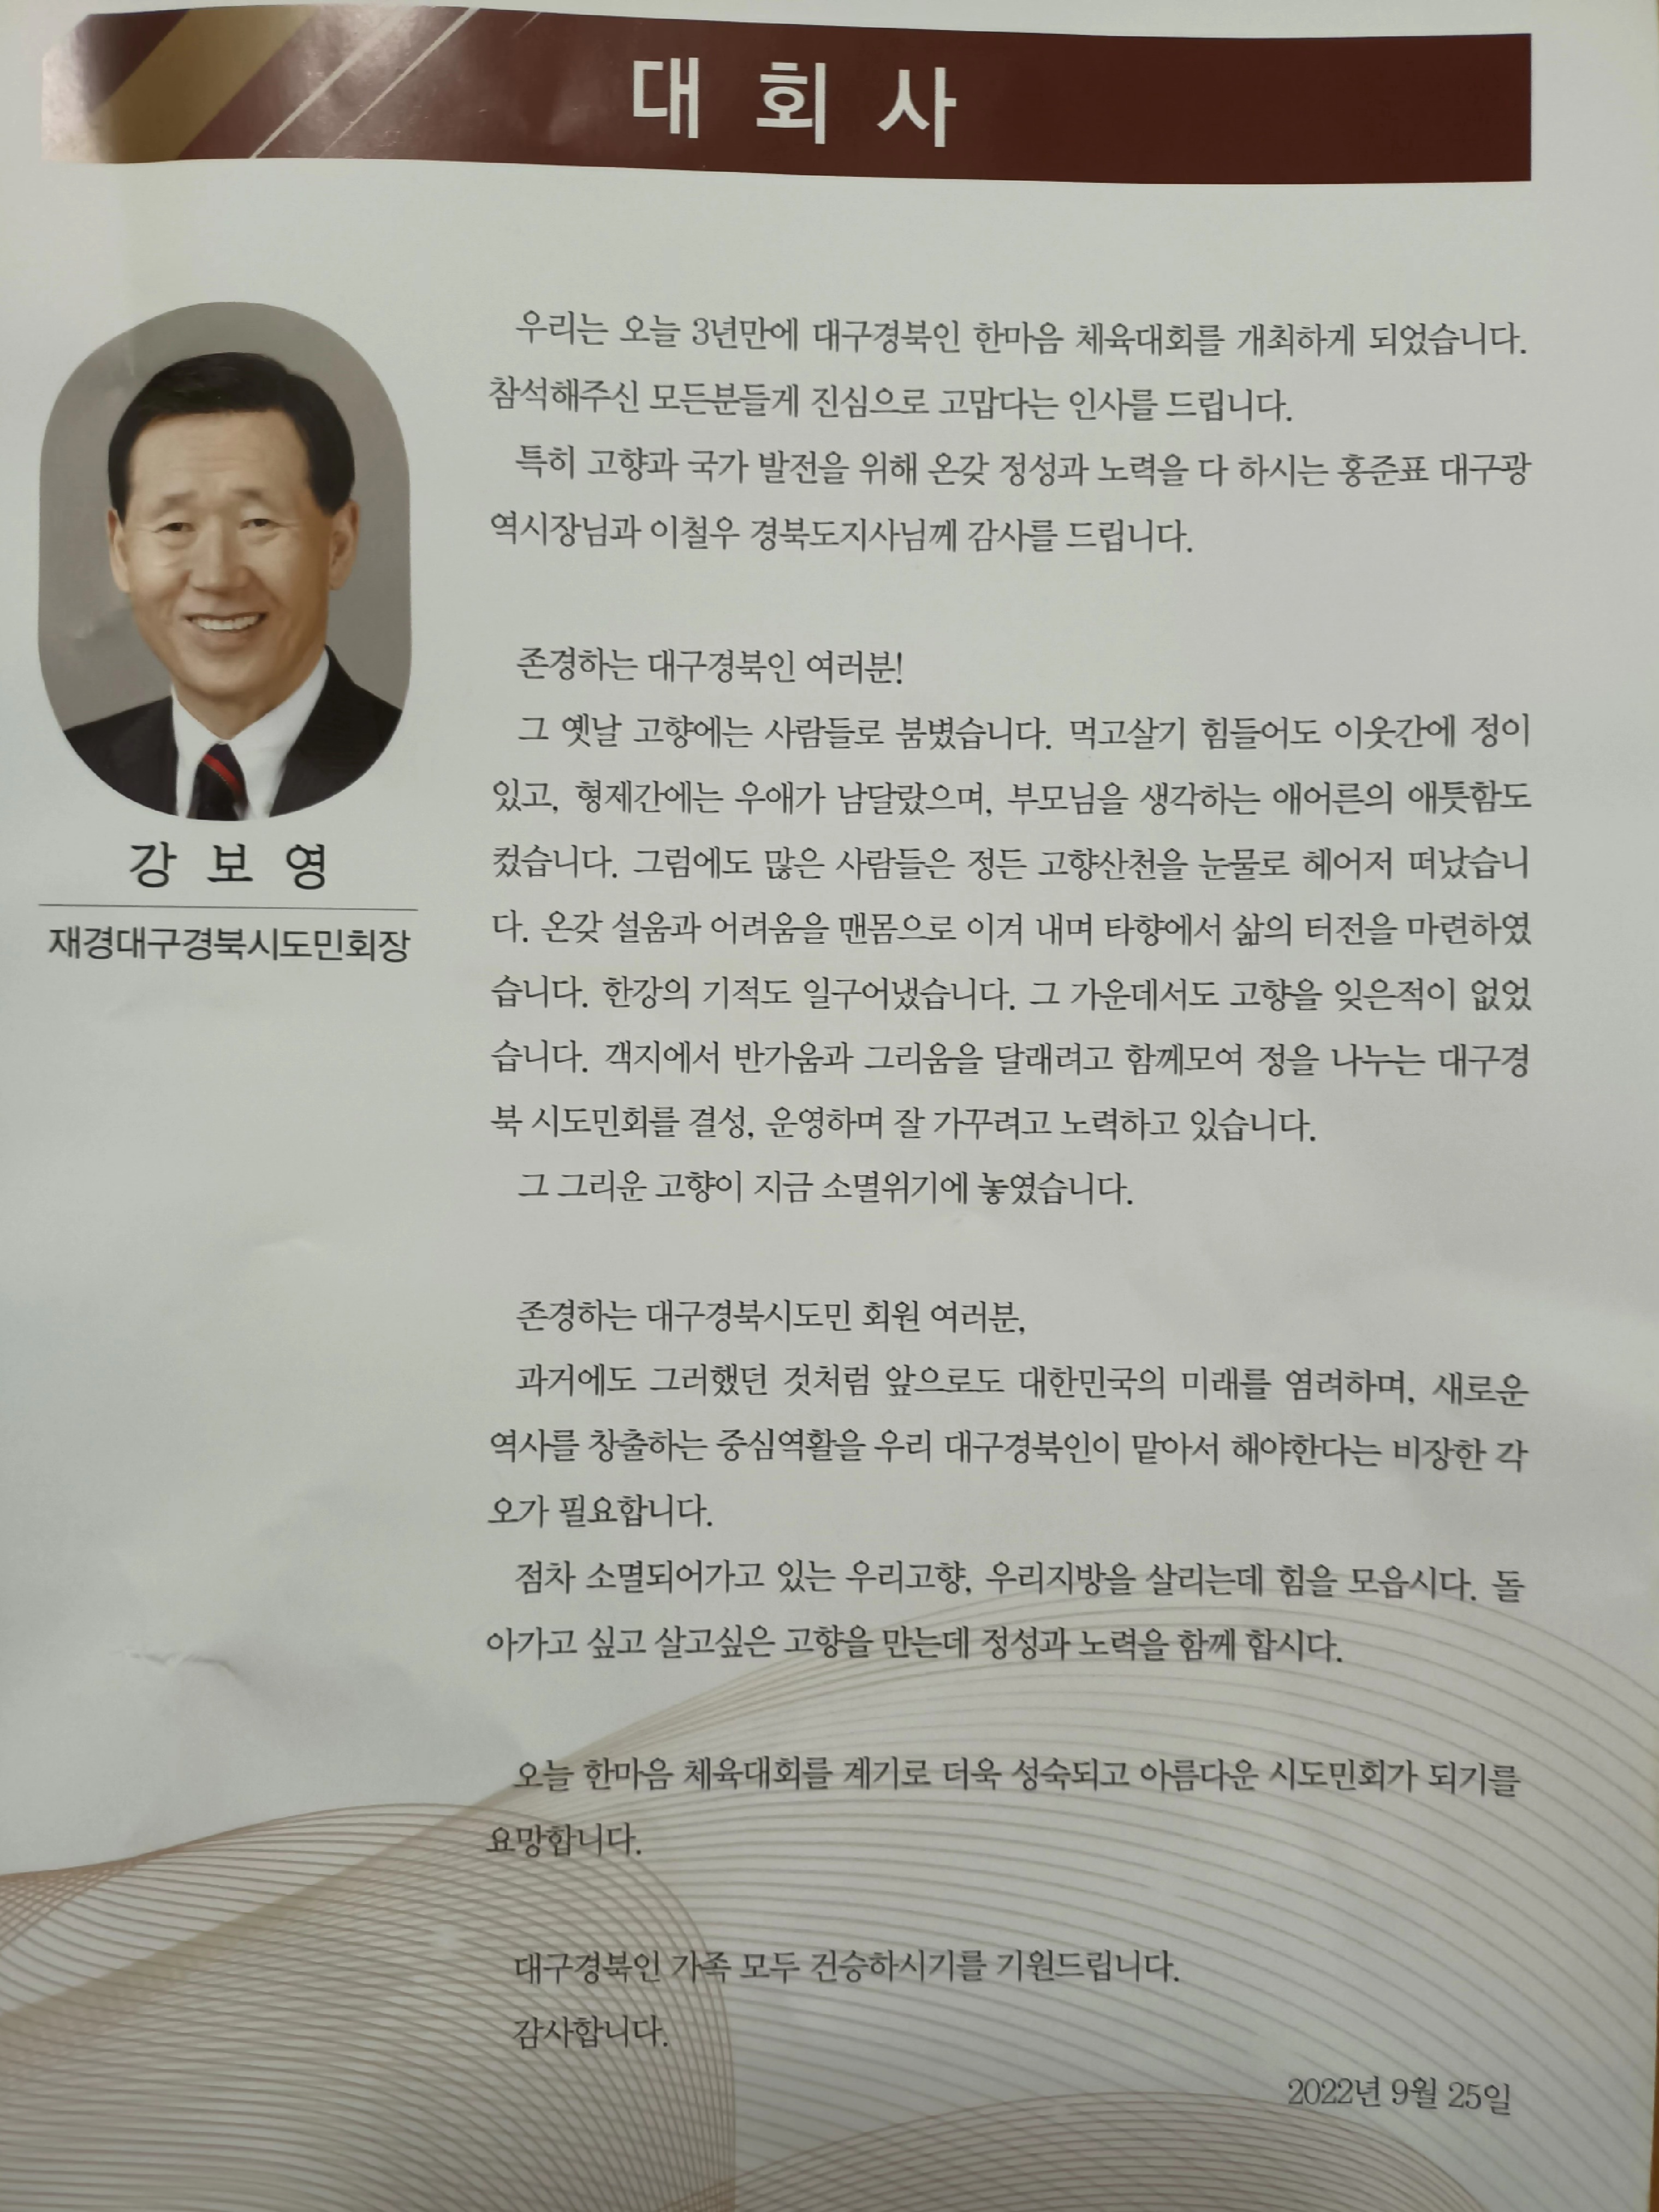 대 회 사
강 보 영
재경대구경북시도민회장
우리는 오늘 3년만에 대구경북인 한마음 체육대회를 개최하게 되었습니다.
참석해주신 모든분들게 진심으로 고맙다는 인사를 드립니다.
특히 고향과 국가 발전을 위해 온갖 정성과 노력을 다 하시는 홍준표 대구광
역시장님과 이철우 경북도지사님께 감사를 드립니다.
존경하는 대구경북인 여러분!
그 옛날 고향에는 사람들로 붐볐습니다. 먹고살기 힘들어도 이웃간에 정이
있고, 형제간에는 우애가 남달랐으며, 부모님을 생각하는 애어른의 애틋함도
컸습니다. 그럼에도 많은 사람들은 정든 고향산천을 눈물로 헤어저 떠났습니
다. 온갖 설움과 어려움을 맨몸으로 이겨 내며 타향에서 삶의 터전을 마련하였
습니다. 한강의 기적도 일구어냈습니다. 그 가운데서도 고향을 잊은적이 없었
습니다. 객지에서 반가움과 그리움을 달래려고 함께모여 정을 나누는 대구경
북 시도민회를 결성, 운영하며 잘 가꾸려고 노력하고 있습니다.
그 그리운 고향이 지금 소멸위기에 놓였습니다.
존경하는 대구경북시도민 회원 여러분,
과거에도 그러했던 것처럼 앞으로도 대한민국의 미래를 염려하며, 새로운
역사를 창출하는 중심역활을 우리 대구경북인이 맡아서 해야한다는 비장한 각
오가 필요합니다.
점차 소멸되어가고 있는 우리고향, 우리지방을 살리는데 힘을 모읍시다. 돌
아가고 싶고 살고싶은 고향을 만는데 정성과 노력을 함께 합시다.
오늘 한마음 체육대회를 계기로 더욱 성숙되고 아름다운 시도민회가 되기를
요망합니다.
대구경북인 가족 모두 건승하시기를 기원드립니다.
감사합니다.
2022년 9월 25일